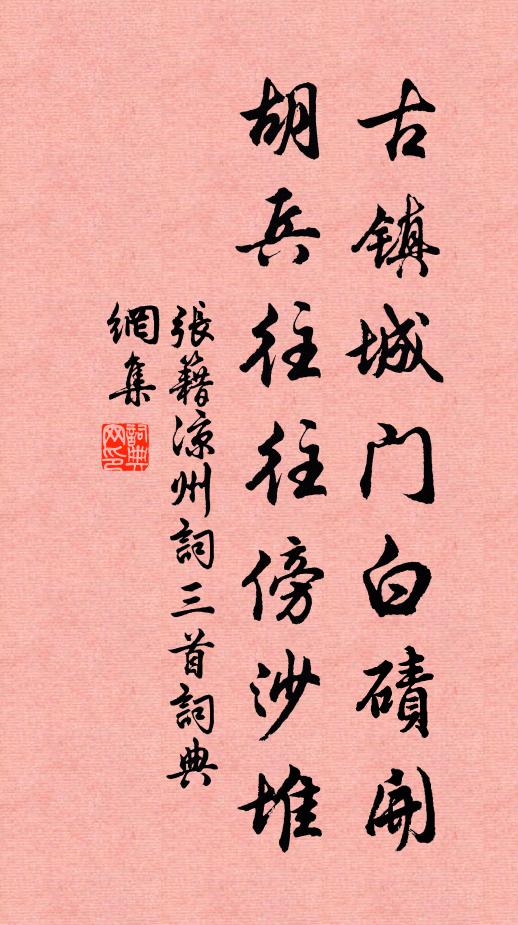 古镇城門白磧開
胡兵往往傍沙堆
張籍凉州詞三首詞典
網集
詞典
网印